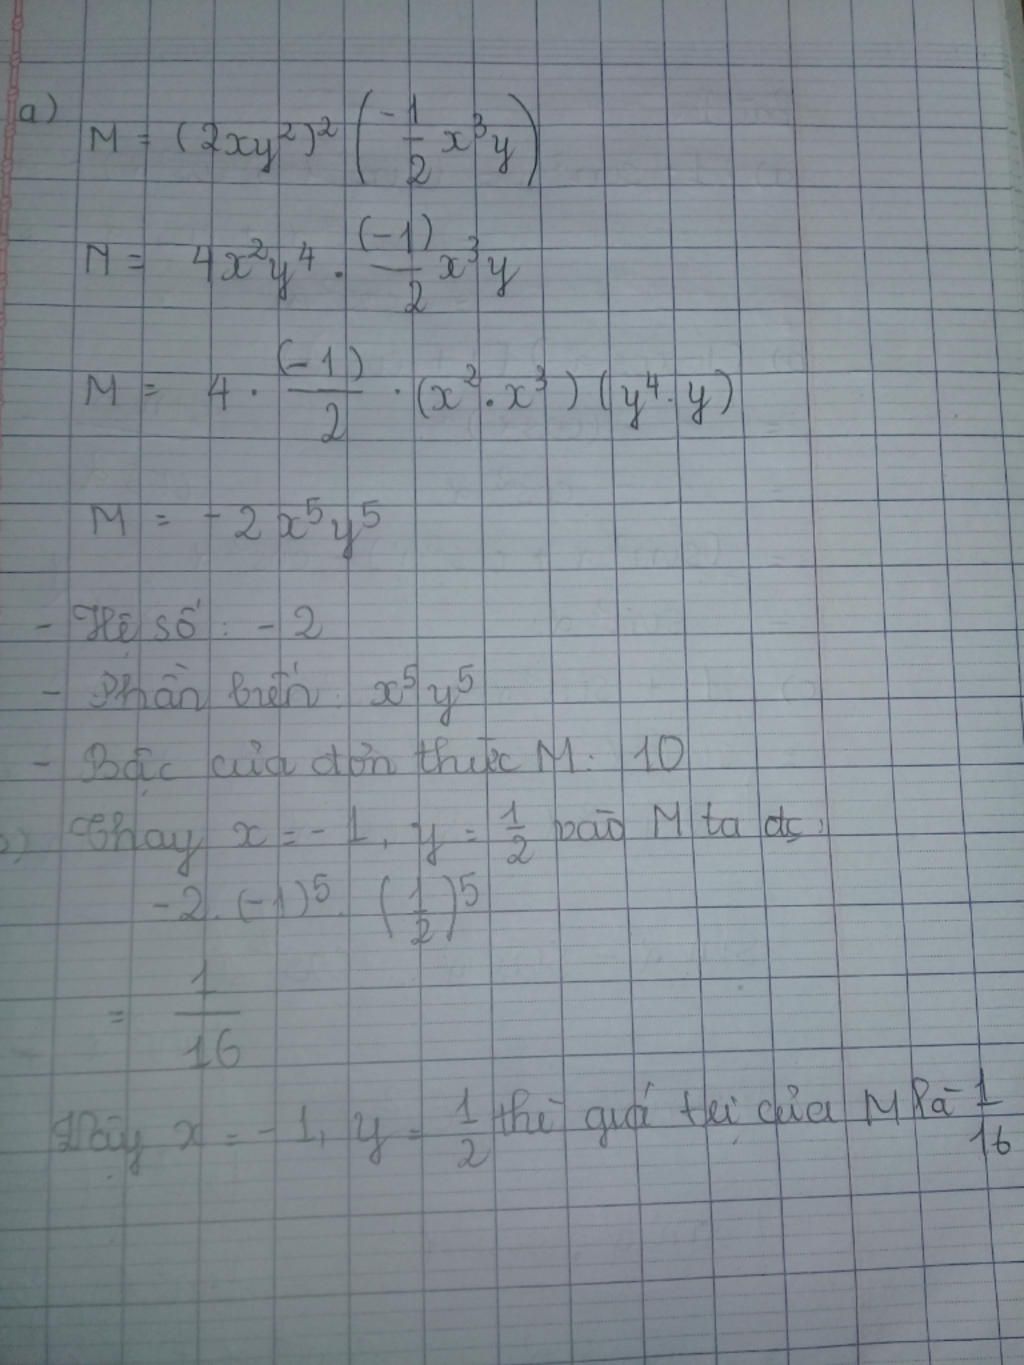 a) M = (2xy²)² (-1/2 x³y)
M = 4x²y⁴ . (-1)/2 x³y
M = 4 . (-1)/2 . (x² . x³) (y⁴ . y)
M = -2x⁵y⁵
- Hệ số : -2
- Phần biến : x⁵y⁵
- Bậc của đơn thức M : 10
b) Thay x = -1, y = 1/2 vào M ta đc :
-2 . (-1)⁵ . (1/2)⁵
= 1/16
Vậy x = -1, y = 1/2 thì giá trị của M là 1/16